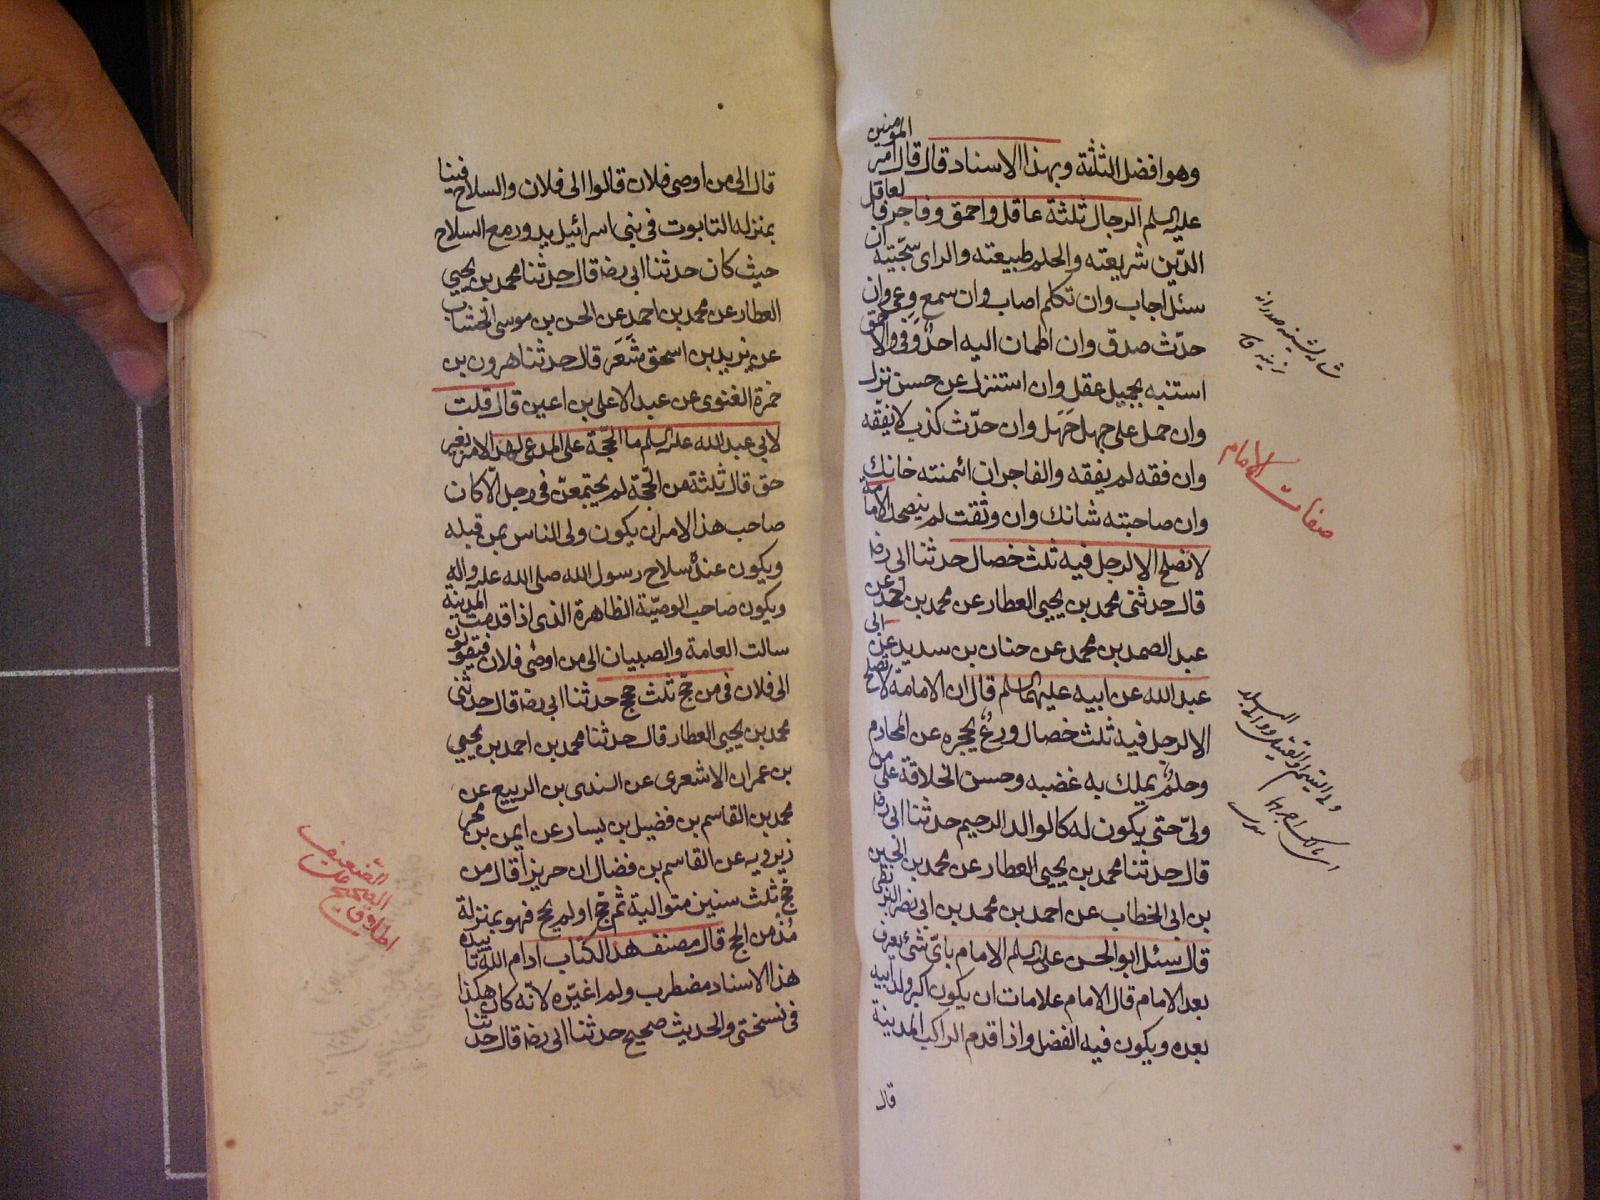 وهو افضل الثلثة وبهذا الاسناد قال قال امير المؤمنين
عليه السلم الرجال ثلثة عاقل واحمق وفاجر فالعاقل
الدّين شريعته والحلم طبيعته والراى سجّيته ان
سئل اجاب وان تكلم اصاب وان سمع وعى وان
حدّث صدق وان اطمان اليه احدٌ وفى والاحمق
استنبه بجميل عقل وان استنزل عن حسن نزل
وان حمل على جهل جَهَل وان حدّث كذب لا يفقه
وان فقه لم يفقه والفاجر ان ائتمنته خانك
وان صاحبته شانك وان وثقت لم ينصحك الامامة
لا تصلح الا لرجل فيه ثلث خصال حدثنا ابى رضه
قال حدثنى محمد بن يحيى العطار عن محمد بن احمد عن
عبد الصمد بن محمد عن حنان بن سدير عن ابى
عبد الله عن ابيه عليهما السلم قال ان الامامة لا تصلح
الا لرجل فيه ثلث خصال ورعٌ يحجزه عن المحارم
وحلمٌ يملك به غضبه وحسن الخلافة على من
ولىّ حتى يكون له كالوالد الرحيم حدثنا ابى رضه
قال حدثنا محمد بن يحيى العطار عن محمد بن الحسين
بن ابى الخطاب عن احمد بن محمد بن ابى نصر البزنطى
قال سئل ابو الحسن عليه السلم الامام باىّ شئ يعرف
بعد الامام قال للامام علامات ان يكون اكبر ولد ابيه
بعده ويكون فيه الفضل واذا قدم الراكب المدينة
قال
صفات الامام
قال الى من اوصى فلان قالوا الى فلان والسلاح فينا
بمنزلة التابوت فى بنى اسرائيل يدور مع السلاح
حيث كان حدثنا ابى رضه قال حدثنا محمد بن يحيى
العطار عن محمد بن احمد عن الحسن بن موسى الخشاب
عن يزيد بن اسحق شَعَر قال حدثنا هرون بن
حمزة الغنوى عن عبد الاعلى بن اعين قال قلت
لابى عبد الله عليه السلم ما الحجّة على المدعى لهذا الامر بغير
حق قال ثلثة من الحجّة لم يجتمعن فى رجل الّا كان
صاحب هذا الامر ان يكون اولى الناس بمن قبله
ويكون عنده سلاح رسول الله صلى الله عليه وآله
ويكون صاحب الوصيّة الظاهرة الذى اذا قدمت المدينة
سالت العامة والصبيان الى من اوصى فلان فيقولون
الى فلان فى من حجّ ثلث حجج حدثنا ابى رضه قال حدثنى
محمد بن يحيى العطار قال حدثنا محمد بن احمد بن يحيى
بن عمران الاشعرى عن السندى بن الربيع عن
محمد بن القاسم بن فضيل بن يسار عن ايمن بن محرز
يرويه عن القاسم بن فضال ان حريزا قال من
حجّ ثلث سنين متوالية ثم حجّ او لم يحج فهو بمنزلة
مُدْمن الحج قال مصنف هذا الكتاب ادام الله تاييده
هذا الاسناد مضطرب ولم اغيّره لانّه كان هكذا
فى نسختى والحديث صحيح حدثنا ابى رضه قال حدثنا